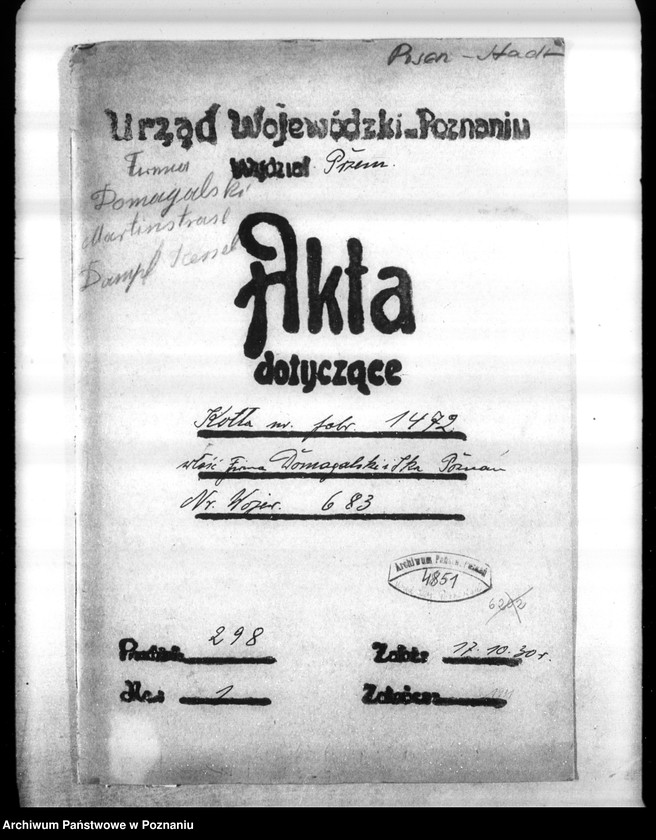 Posen - Stadt
Urząd Wojewódzki w Poznaniu
Wydział Przem.
Firma
Domagalski
Martinstrasse
Dampf Kessel
Akta
dotyczące
Kotła nr. fabr. 1472
włość Firma Domagalski i Ska Poznań
Nr. Wojew. 683
Archiwum Państw. Poznań
4851
6202
298
Założ. 17.10.30 r.
1
Archiwum Państwowe w Poznaniu